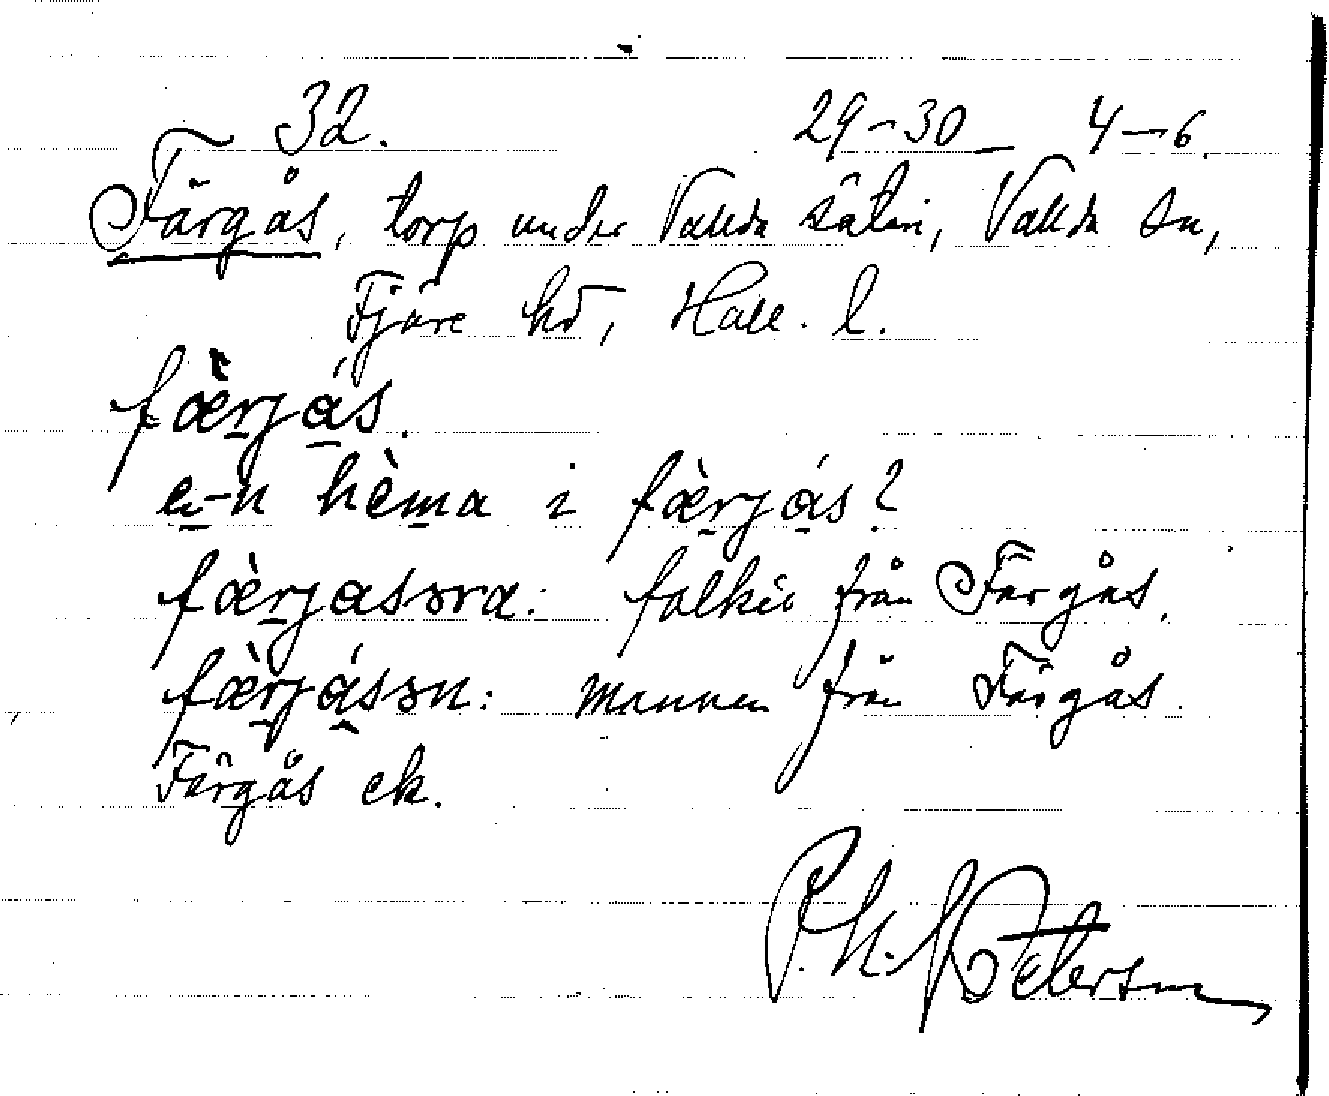 32. 29-30 4-6.
Färgås, torp under Vallda säteri, Vallda sn,
Fjäre hd, Hall. l.
fæ̀rjás.
e-n hèma i fæ̀rjás?
fæ̀rjasəra: folket från Färgås.
fæ̀rjásən: mannen från Färgås.
Färgås ek.
P. N. Peterson